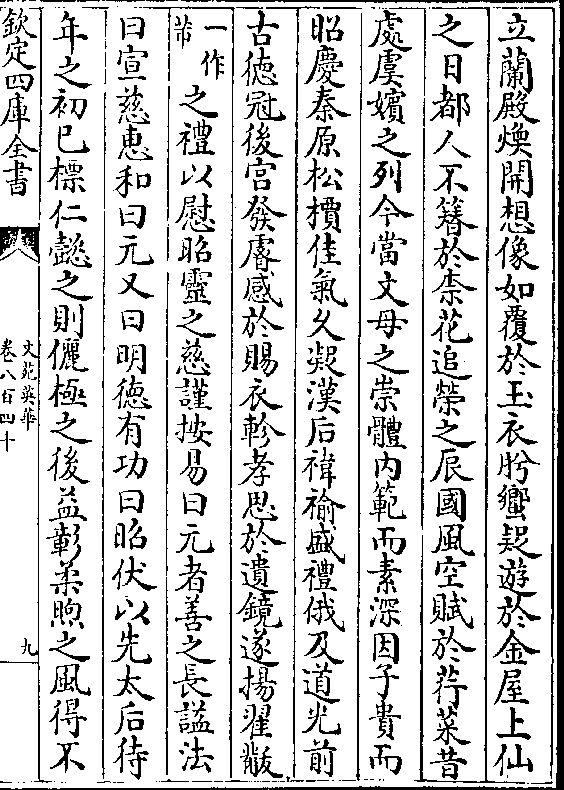 立蘭殿煥開想像如覆於玉衣肹蠁疑遊於金屋上仙
之日都人不簪於柰花追榮之辰國風空賦於荇菜昔
處虞嬪之列今當文母之崇體内範而素深因子貴而
昭慶秦原松檟佳氣久凝漢后褘褕盛禮俄及道光前
古徳冠後宫發膚感於賜衣軫孝思於遺鏡遂揚翟黻
一作芾之禮以慰昭靈之慈謹按易曰元者善之長謚法
曰宣慈惠和曰元又曰明徳有功曰昭伏以先太后待
年之初已標仁懿之則儷極之後益彰柔煦之風得不
欽定四庫全書
文苑英華
卷八百四十
九